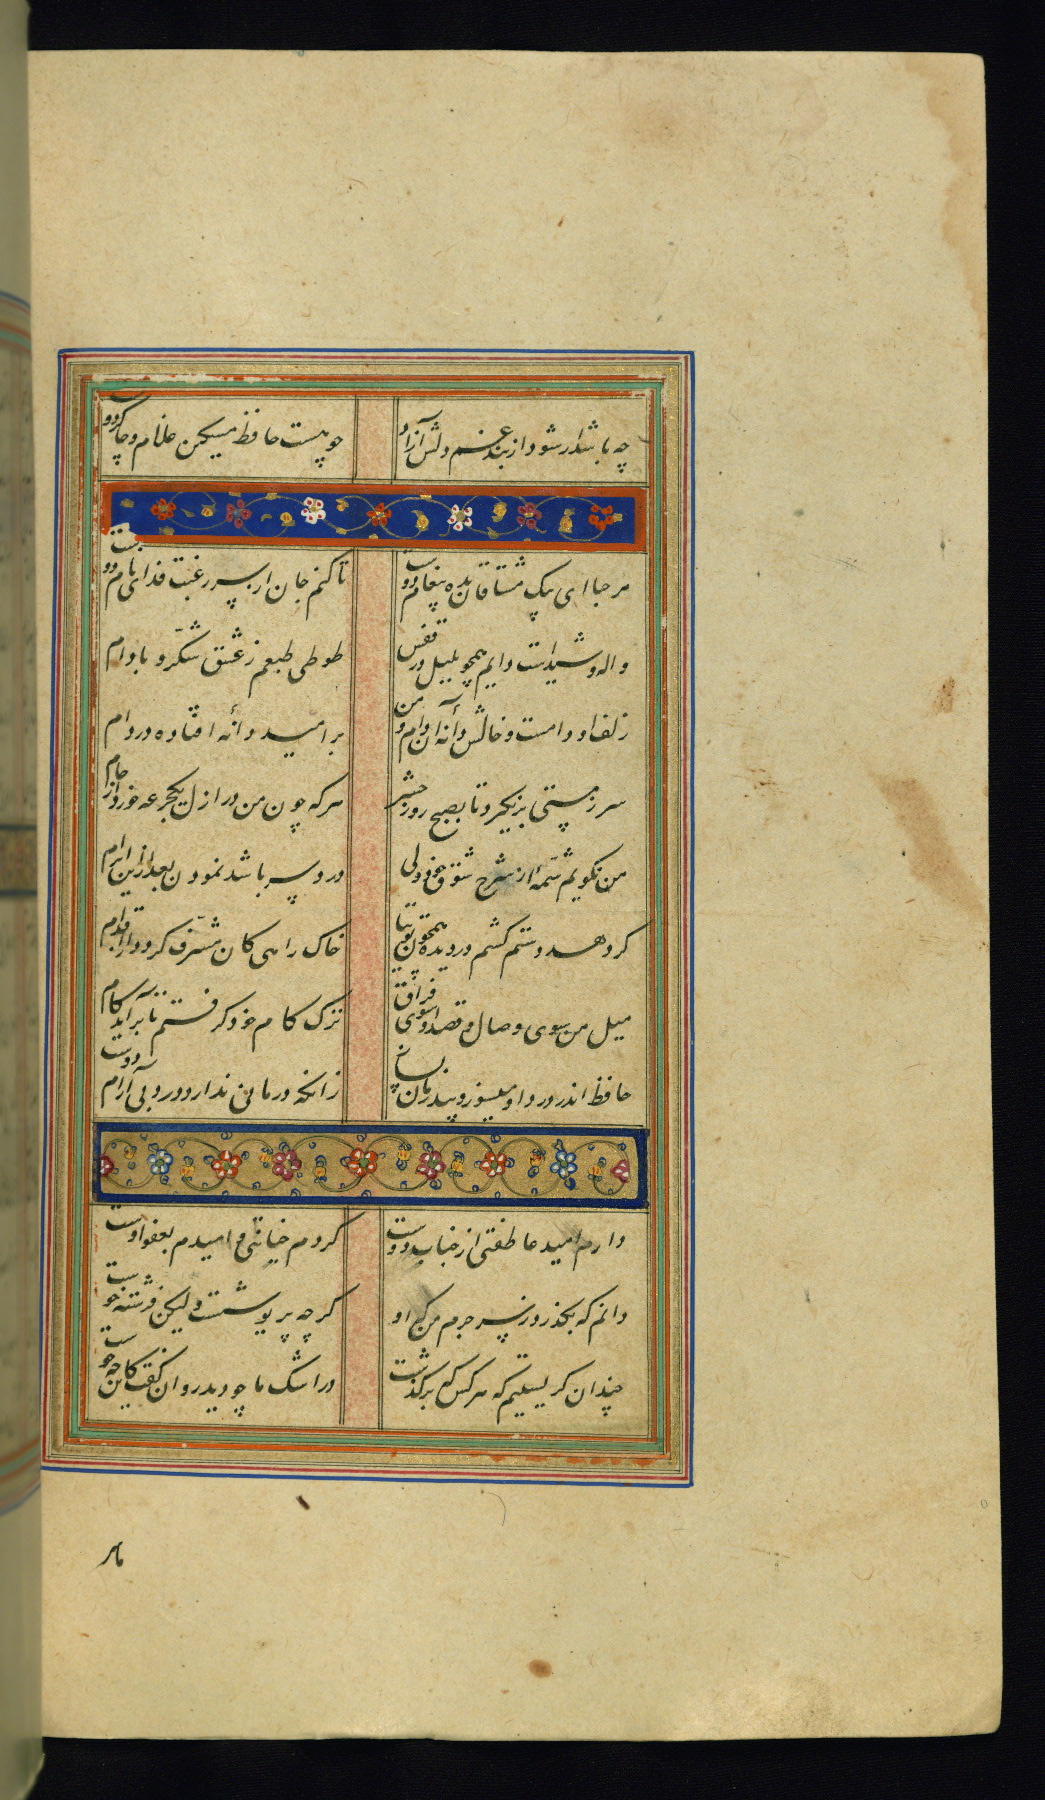 چه باشد ار شود از بند غم دلش آزاد چو هست حافظ مسکین غلام و چاکر دوست
مرحبا ای پیک مشتاقان بده پیغام دوست تا کنم جان از سر رغبت فدای نام دوست
واله و شیداست دایم همچو بلبل در قفس طوطی طبعم ز عشق شکر و بادام
زلف او دامست و خالش دانه آن دام و من بر امید دانه افتاده در دام
سر ز مستی بر نگیرد تا بصبح روز حشر هر که چون من در ازل یک جرعه خورد از جام
من نگویم شمه از شرح شوق خود ولی درد سر باشد نمودن بعد ازین ابرام
کر دهد دستم کشم در دیده همچون توتیا خاک راهی کان مشرف کردد از اقدام
میل من سوی وصال و قصد او سوی فراق ترک کام خود کرفتم تا برآید کام
حافظ اندر درد او میسوز و پند زمان زانکه درمانی ندارد درد بی آرام دوست
دارم امید عاطفتی از جناب دوست کردم خیانتی و امیدم بعفو اوست
دانم که بکذرد ز سر جرم من که او کر چه پریوشست ولیکن فرشته خوست
چندان کریستیم که هر کس که برکذشت در اشک ما چو دید روان کفت کاین چه جوست